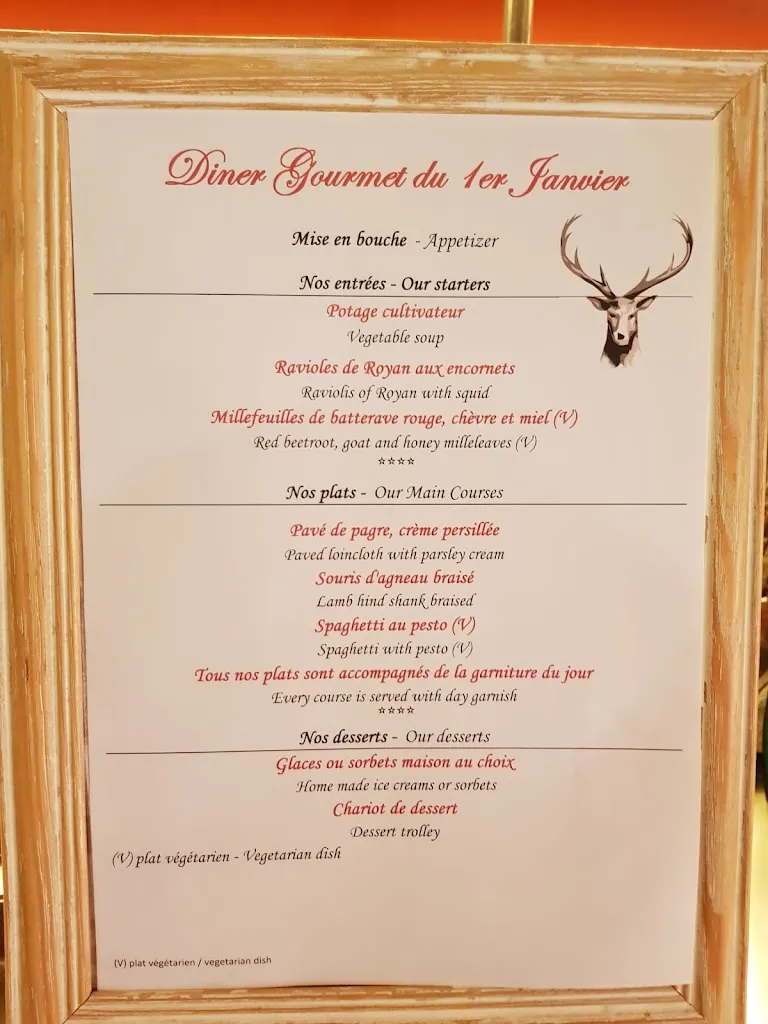 Diner Gourmet du 1er Janvier
Mise en bouche - Appetizer
Nos entrées - Our starters
Potage cultivateur
Vegetable soup
Ravioles de Royan aux encornets
Raviolis of Royan with squid
Millefeuilles de batterave rouge, chèvre et miel (V)
Red beetroot, goat and honey milleleaves (V)
****
Nos plats - Our Main Courses
Pavé de pagre, crème persillée
Paved loincloth with parsley cream
Souris d'agneau braisé
Lamb hind shank braised
Spaghetti au pesto (V)
Spaghetti with pesto (V)
Tous nos plats sont accompagnés de la garniture du jour
Every course is served with day garnish
****
Nos desserts - Our desserts
Glaces ou sorbets maison au choix
Home made ice creams or sorbets
Chariot de dessert
Dessert trolley
(V) plat végétarien - Vegetarian dish
(V) plat végétarien / vegetarian dish